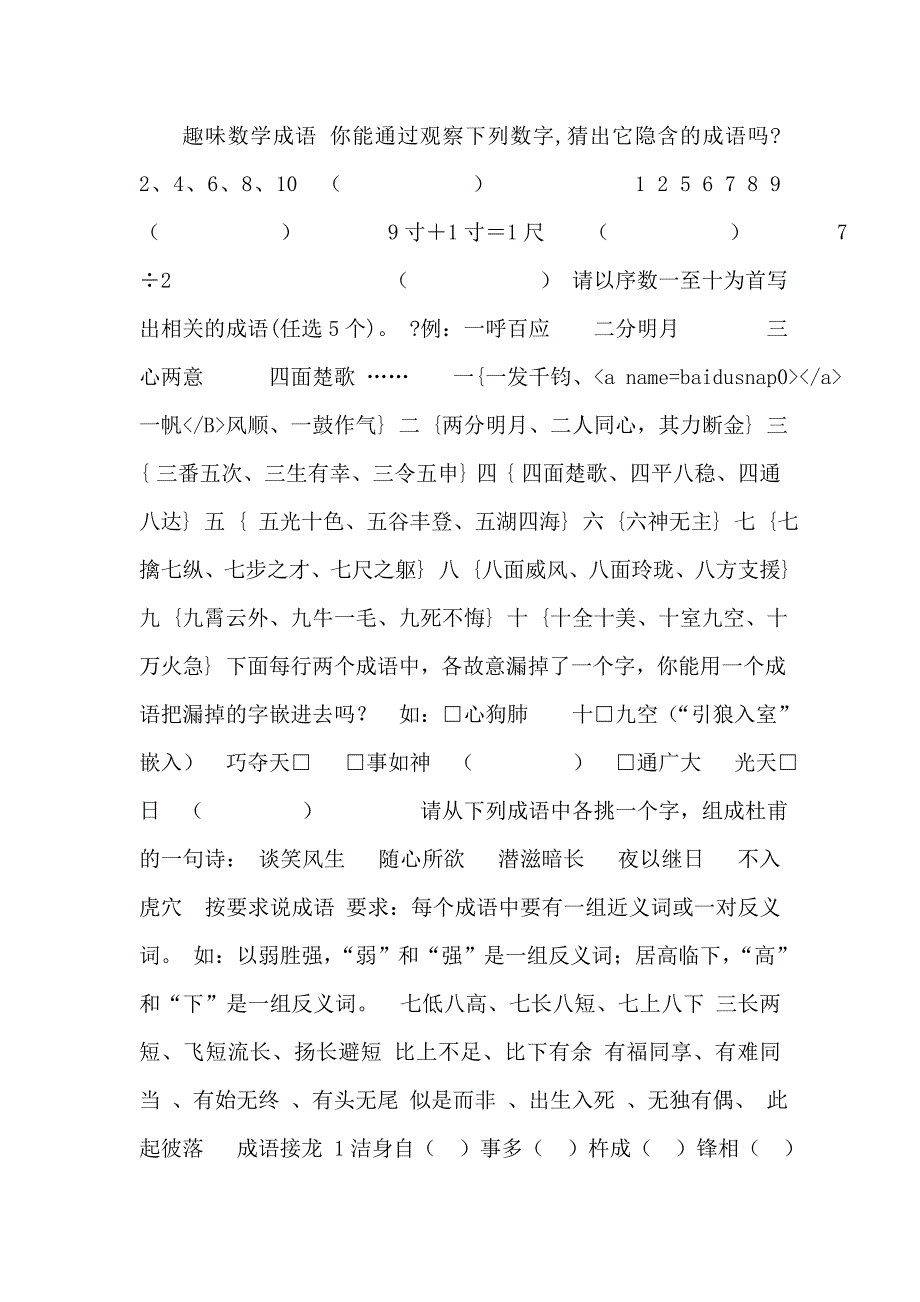 趣味数学成语 你能通过观察下列数字,猜出它隐含的成语吗?
2、4、6、8、10 （ ） 1 2 5 6 7 8 9
（ ） 9寸＋1寸＝1尺 （ ） 7
÷2 （ ） 请以序数一至十为首写
出相关的成语(任选5个)。 ?例：一呼百应 二分明月 三
心两意 四面楚歌 …… 一{一发千钧、<a name=baidusnap0></a>
一帆</B>风顺、一鼓作气} 二 {两分明月、二人同心，其力断金} 三
{ 三番五次、三生有幸、三令五申} 四 { 四面楚歌、四平八稳、四通
八达} 五 { 五光十色、五谷丰登、五湖四海} 六 {六神无主} 七 {七
擒七纵、七步之才、七尺之躯} 八 {八面威风、八面玲珑、八方支援}
九 {九霄云外、九牛一毛、九死不悔} 十 {十全十美、十室九空、十
万火急} 下面每行两个成语中，各故意漏掉了一个字，你能用一个成
语把漏掉的字嵌进去吗？ 如：□心狗肺 十□九空（“引狼入室”
嵌入） 巧夺天□ □事如神 （ ） □通广大 光天□
日 （ ） 请从下列成语中各挑一个字，组成杜甫
的一句诗： 谈笑风生 随心所欲 潜滋暗长 夜以继日 不入
虎穴 按要求说成语 要求：每个成语中要有一组近义词或一对反义
词。 如：以弱胜强，“弱”和“强”是一组反义词；居高临下，“高”
和“下”是一组反义词。 七低八高、七长八短、七上八下 三长两
短、飞短流长、扬长避短 比上不足、比下有余 有福同享、有难同
当 、有始无终 、有头无尾 似是而非 、出生入死 、无独有偶、 此
起彼落 成语接龙 1洁身自（ ）事多（ ）杵成（ ）锋相（ ）